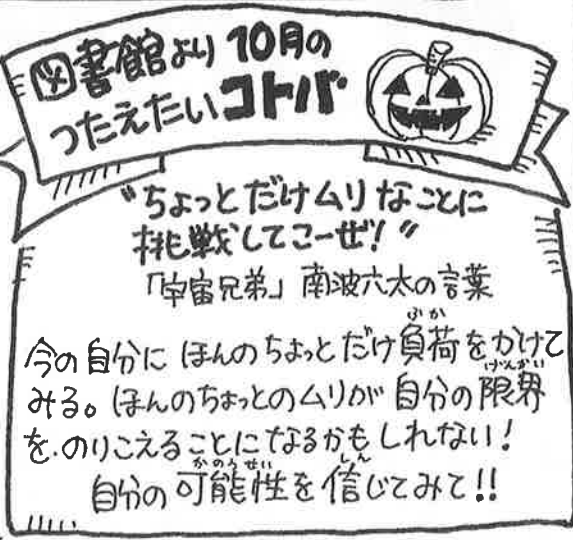 図書館より 10月の
つたえたいコトバ
"ちょっとだけムリなことに
挑戦してこーぜ！"
「宇宙兄弟」南波六太の言葉
今の自分に ほんのちょっとだけ負荷をかけて
みる。ほんのちょっとのムリが 自分の限界
を.のりこえることになるかもしれない！
自分の可能性を信じてみて!!